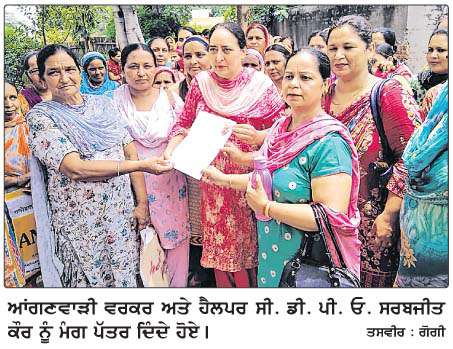 ਆਂਗਣਵਾੜੀ ਵਰਕਰ ਅਤੇ ਹੈਲਪਰ ਸੀ. ਡੀ. ਪੀ. ਓ. ਸਰਬਜੀਤ
ਕੌਰ ਨੂੰ ਮੰਗ ਪੱਤਰ ਦਿੰਦੇ ਹੋਏ। ਤਸਵੀਰ : ਗੋਗੀ